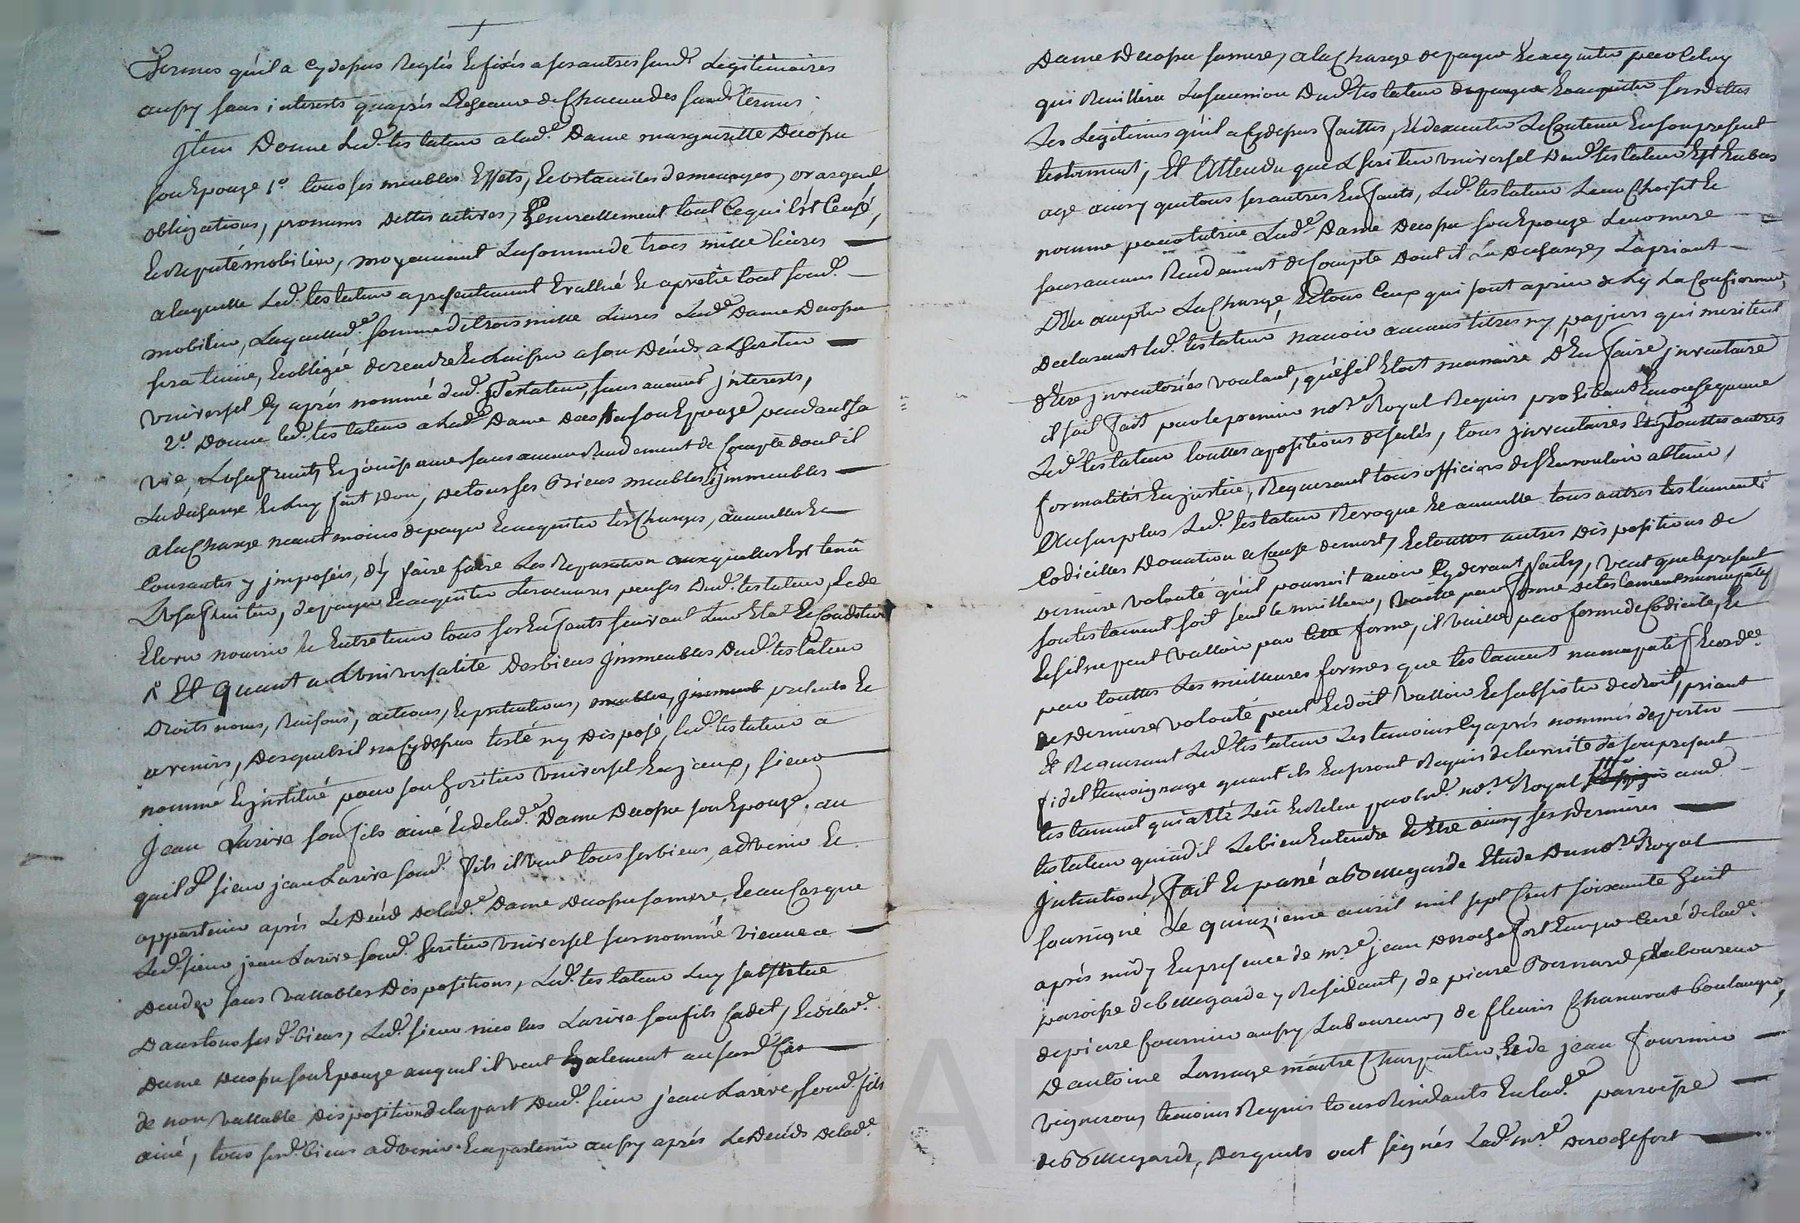 Termes qu'il a cy depus Reglés & fixés a ses autres susd. Legitimaires
aussy sans interests qu'aprés L'Egeance de Chacun des susd. termes.
Item Donne Led. testateur a lad.e Dame marguerite Ducopu
son Epouze 1° tous ses meubles Effets, & ustancilles de menages, or argent
obligations, promesses dettes actives, Generallement tout Ce qui Est Censé,
& Reputé mobilier, moyennant La somme de trois mille livres
a laquelle Led. testateur a presentement Evallué & aprétié tout sond.
mobilier, Laquelle d.e somme de trois mille Livres Lad. Dame Ducopu
sera tenüe, & obligée de rendre & Laisser a son Décés a L'heritier
Universel Cy aprés nommé dud. Testateur, sans aucuns jnterests,
2.° Donne led. testateur a lad.e Dame Ducopu son Epouze pendant sa
vie, L'usufruit & jouissance sans aucun Rendement de Compte dont il
La decharge & Luy fait Don, de tous ses Biens meubles & jmmeubles
a la Charge neantmoins de payer & acquitter les Charges, annuelles &
Courantes y jmposées, d'y faire faire Les Reparation auxquelles Est tenüe
L'usufruitier, de payer & acquitter Les pensions dud. testateur, & de
Elever nourrir & Entretenir tous ses Enfants suivant Leur Etat & Condition
Et Quant a L'Universalité Des biens Jmmeubles Dud. testateur
Droits noms, Raisons, actions, & prétentions, meubles, jmmeub presents &
avenirs, Desquels il na Cy depus testé ny Disposé, led. testateur a
nommé & jnstitué pour son heritier Universel & jceux, sieur
Jean Larive son fils ainé & de lad.e Dame Ducopu son Epouze, au
quel d. sieur jean Larive sond. fils il veut tous ses biens, advenir &
appartenir aprés Le Décés de lad.e Dame Ducopu sa mere, & au Cas que
Led. sieur jean Larive sond. heritier Universel surnommé vienne a
Deceder sans vallables Dispositions, Led. testateur Luy substitue
Dans tous ses d. biens, Led. sieur nicolas Larive son fils Cadet, & de lad.e
Dame Ducopu son Epouze auquel il veut Egalement au susd. Cas
de non vallable disposition de la part Dud. sieur jean Larive, sond. fils
ainé, tous sesd. biens advenir & apartenir aussy aprés Le Décés de lad.e
Dame Ducopu sa mere, a la Charge de payer & acquitter par Celuy
qui Recuillera La succession Dud. testateur de payer & acquitter sesdittes
Les Legitimes qu'il a Cy depus faittes, & d'executer Le Contenu En son present
testament, Et Attendu que L'heritier Universel Dud. testateur Est En bas
age ainsy que tous ses autres Enfants, Led. testateur Leur Choisit &
nomme pour tutrice Lad.e Dame Ducopu son Epouze Leur mere
sans aucun Rendement de Compte Dont il La Decharge, La priant
D'En accepter La Charge, & tous Ceux qui sont a prier de Ly La Confirmer,
Declarant led. testateur navoir aucuns titres ny papiers qui meritent
d'Etre jnventoriés voulant, que s'il Etoit necessaire D'En faire jnventaire
il soit fait par le premier no.re Royal Requis prohibant En consequence
Led. testateur touttes apositions de scelés, tous jnventaires & touttes autres
formalités En justice, Requerant tous officiers de s'En vouloir abtenir,
Au surplus Led. testateur Revoque & annulle tous autres testaments
Codicilles Donation a Cause de mort, & touttes autres Dispositions de
derniere volonté qu'il pourroit avoir Cy devant faites, veut que le présent
son testament soit seul le meilleur, & vaille par forme de testament nuncupatif
& s'il ne peut valloir par Cette forme, il vaille par forme de Codicile, &
par touttes Les meilleures formes que testament nuncupatif & ord.re
de Derniere volonté peut & doit valloir & subsister de droit, priant
Et Requerant Led. testateur Les temoins Cy aprés nommés de porter
fidel temoignage quand ils En seront Requis de la verité de son present
testament qui a Eté Leü & Releu par led. no.re Royal aud.
testateur qui a dit Le bien Entendre & Etre ainsy ses Dernieres
Jntentions, fait & passé a bellegarde Etude Du no.re Royal
soussigné Le quinzieme avril mil sept Cent soixante huit
aprés midy En presence de m.re jean Derochefort Ecuyer Curé de lad.
paroisse de bellegarde y Residant, de pierre Bernard, Laboureur
de pierre fournier aussy Laboureur, de fleuris Chanavat boulanger,
D'antoine Lornage maitre Charpentier, & de jean fournier
vigneron, temoins Requis tous Residants En lad.e parroisse
de bellegarde, Desquels ont signés Led. m.re Derochefort